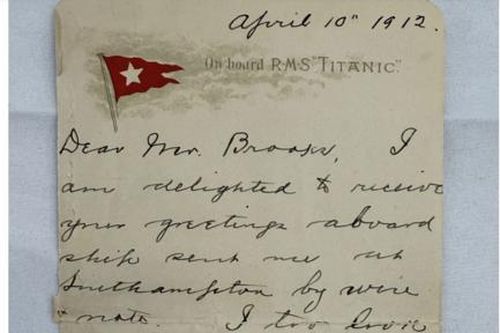 April 10" 1912.
On board R·M·S "TITANIC".
Dear Mr. Brooks, I
am delighted to receive
your greetings aboard
ship sent me at
Southampton by wire
& note. I too love